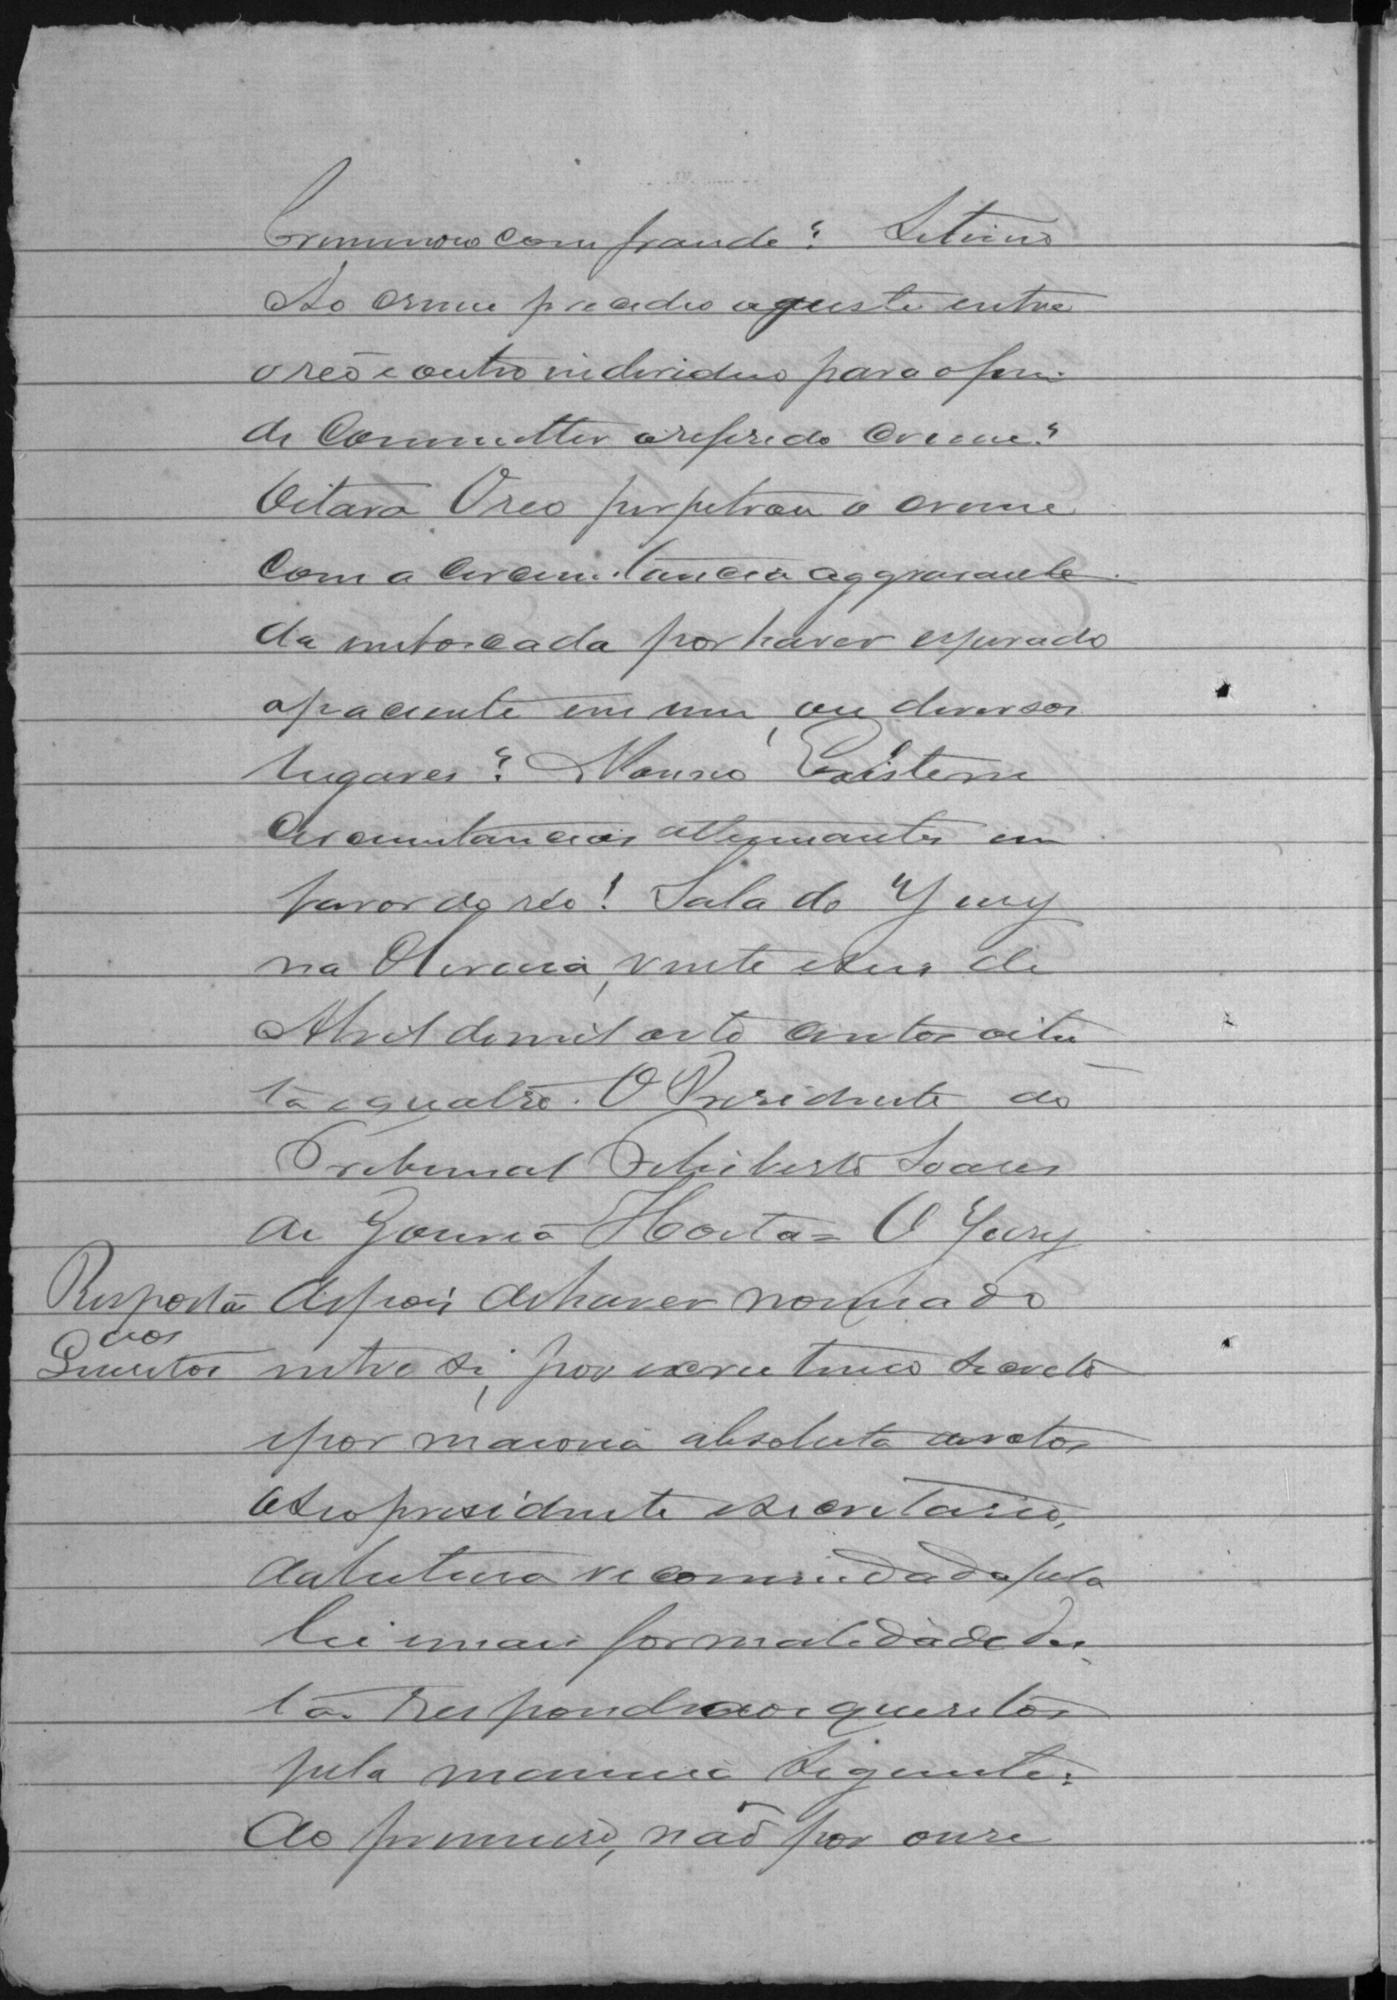 Criminoso com fraude? Setimo
Ao crime precedeo ajuste entre
o reo e outro individuo para o fim
de Commetter o referido crime?
Oitavo O reo perpetrou o crime
com a circunstancia aggravante
da emboscada por haver esperado
o paciente em um, ou diversos
lugares? Nono Existem
circunstancias attenuantes em
favor do réo? Sala do Jury
na Oliveira, vinte e seis de
Abril de mil oito centos oiten
ta e quatro. O Presidente do
Tribunal Feliciberto Soares
de Gouvea Horta = O Jury
Resposta depois de haver nomeado
aos
Quesitos entre si, por escrutinio secreto
e por maioria absoluta de votos
o seo presidente e secretario,
da leitura recommendada pela
lei e mais formalidade des
ta. respondeo aos quesitos
pela maneira seguinte:
Ao primeiro, não por onze